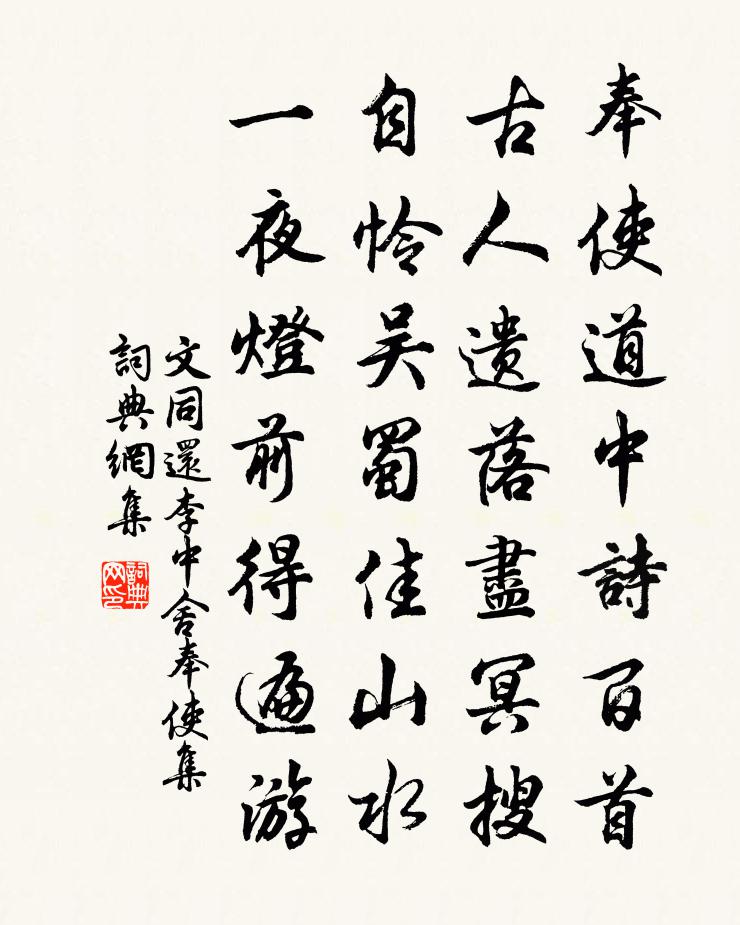 奉使道中詩百首
古人遺落盡冥搜
自怜吴蜀佳山水
一夜燈前得遍游
文同還李中舍奉使集
詞典網集
詞典网印